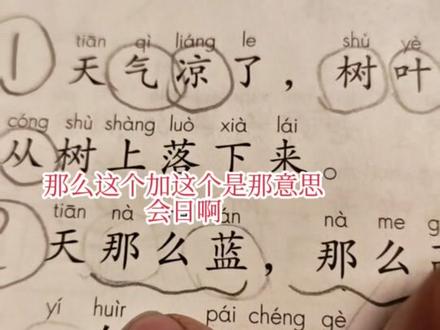 1
tiān qì liáng le shù yè
天气凉了，树叶
cóng shù shàng luò xià lái
从树上落下来。
那么这个加这个是那意思
会日啊
tiān nà nà me
天那么蓝，那么
yí huìr pái chéng gè